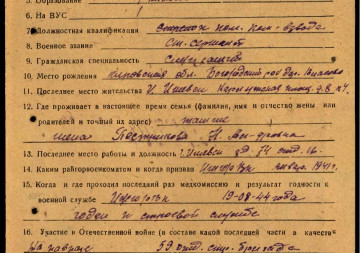 5. Образование
6. На ВУС
7. Должностная квалификация стрелок пом. ком. взвода
8. Военное звание ст. сержант
9. Гражданская специальность служащий
10. Место рождения Кировская обл. Богородский р-он дер.
11. Последнее место жительства г. Ижевск д. 8 кв. 4
12. Где проживает в настоящее время семья (фамилия, имя и отчество жены или
родителей и точный их адрес) там же
жена Постникова
13. Последнее место работы и должность г. Ижевск 74
14. Каким райгорвоенкоматом и когда призван 1941 г.
15. Когда и где проходил последний раз медкомиссию и результат годности к
военной службе 19-08-44 года
годен к строевой службе
16. Участие в Отечественной войне (в составе какой последней части в качестве
59 отд. стр. бригада